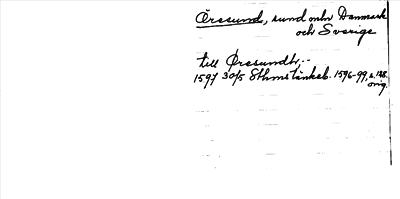 Öresund, sund mln Danmark
och Sverige
till Öresundh,..
1597 30/5 Sthms tänkeb. 1596-99, s. 128.
orig.